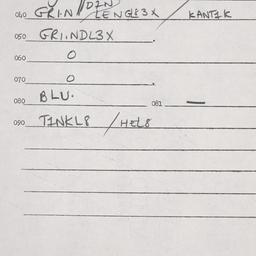 040 GRIN // DIN LENGL3X / KANTIK
050 GRIINDL3X
060 0
070 0
080 BLU. 081 —
090 TINKL8 / HEL8